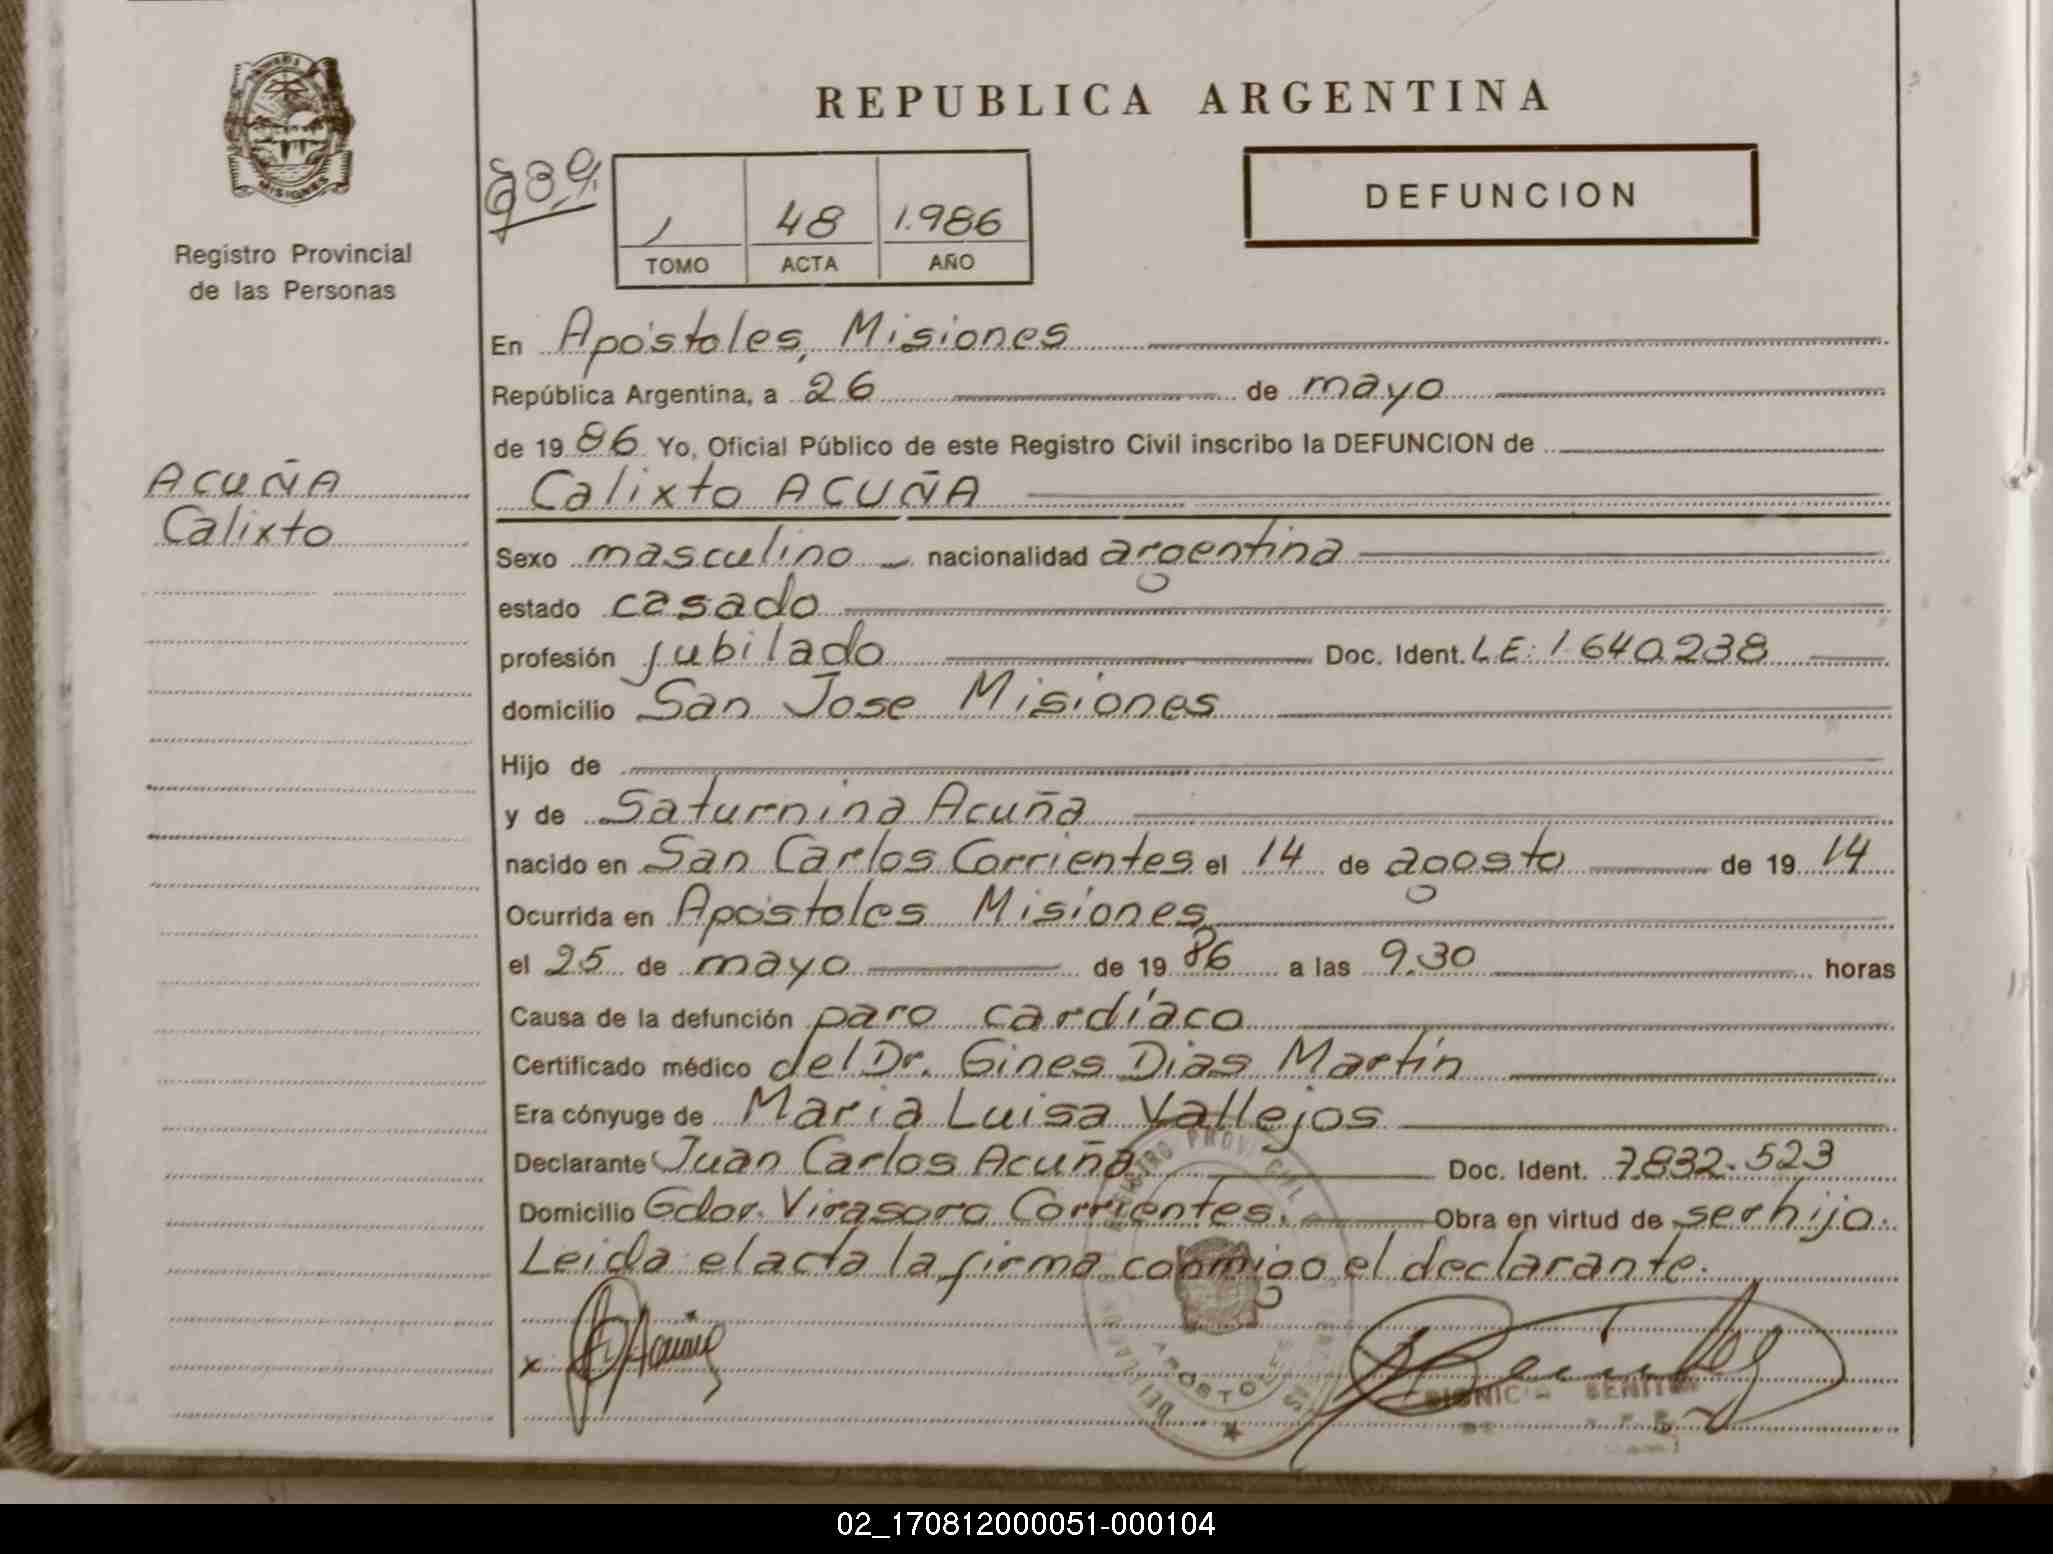 REPUBLICA ARGENTINA
MISIONES
Registro Provincial
de las Personas
1 48 1.986
TOMO ACTA AÑO
DEFUNCION
En Apóstoles, Misiones
República Argentina, a 26 de mayo
de 1986 Yo, Oficial Público de este Registro Civil inscribo la DEFUNCION de
ACUÑA
Calixto
Calixto ACUÑA
Sexo masculino nacionalidad argentina
estado casado
profesión jubilado Doc. Ident. L.E: 1.640.238
domicilio San Jose Misiones
Hijo de
y de Saturnina Acuña
nacido en San Carlos Corrientes el 14 de agosto de 19 14
Ocurrida en Apóstoles Misiones
el 25 de mayo de 19 86 a las 9.30 horas
Causa de la defunción paro cardíaco
Certificado médico del Dr. Gines Dias Martín
Era cónyuge de Maria Luisa Vallejos
Declarante Juan Carlos Acuña Doc. Ident. 7.832.523
Domicilio Gdor. Virasoro Corrientes. Obra en virtud de ser hijo.
Leida el acta la firma conmigo el declarante.
x
APOSTOLES
02_170812000051-000104